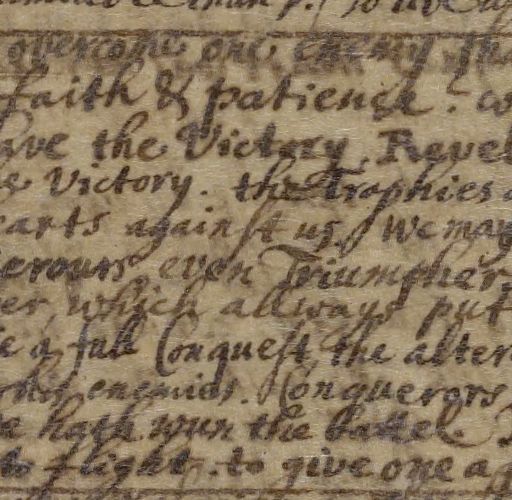 to
overcome one enemy
faith & patience.
ave the Victory. Revel
e Victory. the Trophies
earts against us. We may
erours even Triumpher
er which allways put
e a full Conquest the alter
enemies. Conquerors
e hath wun the battel
to flight. to give one a